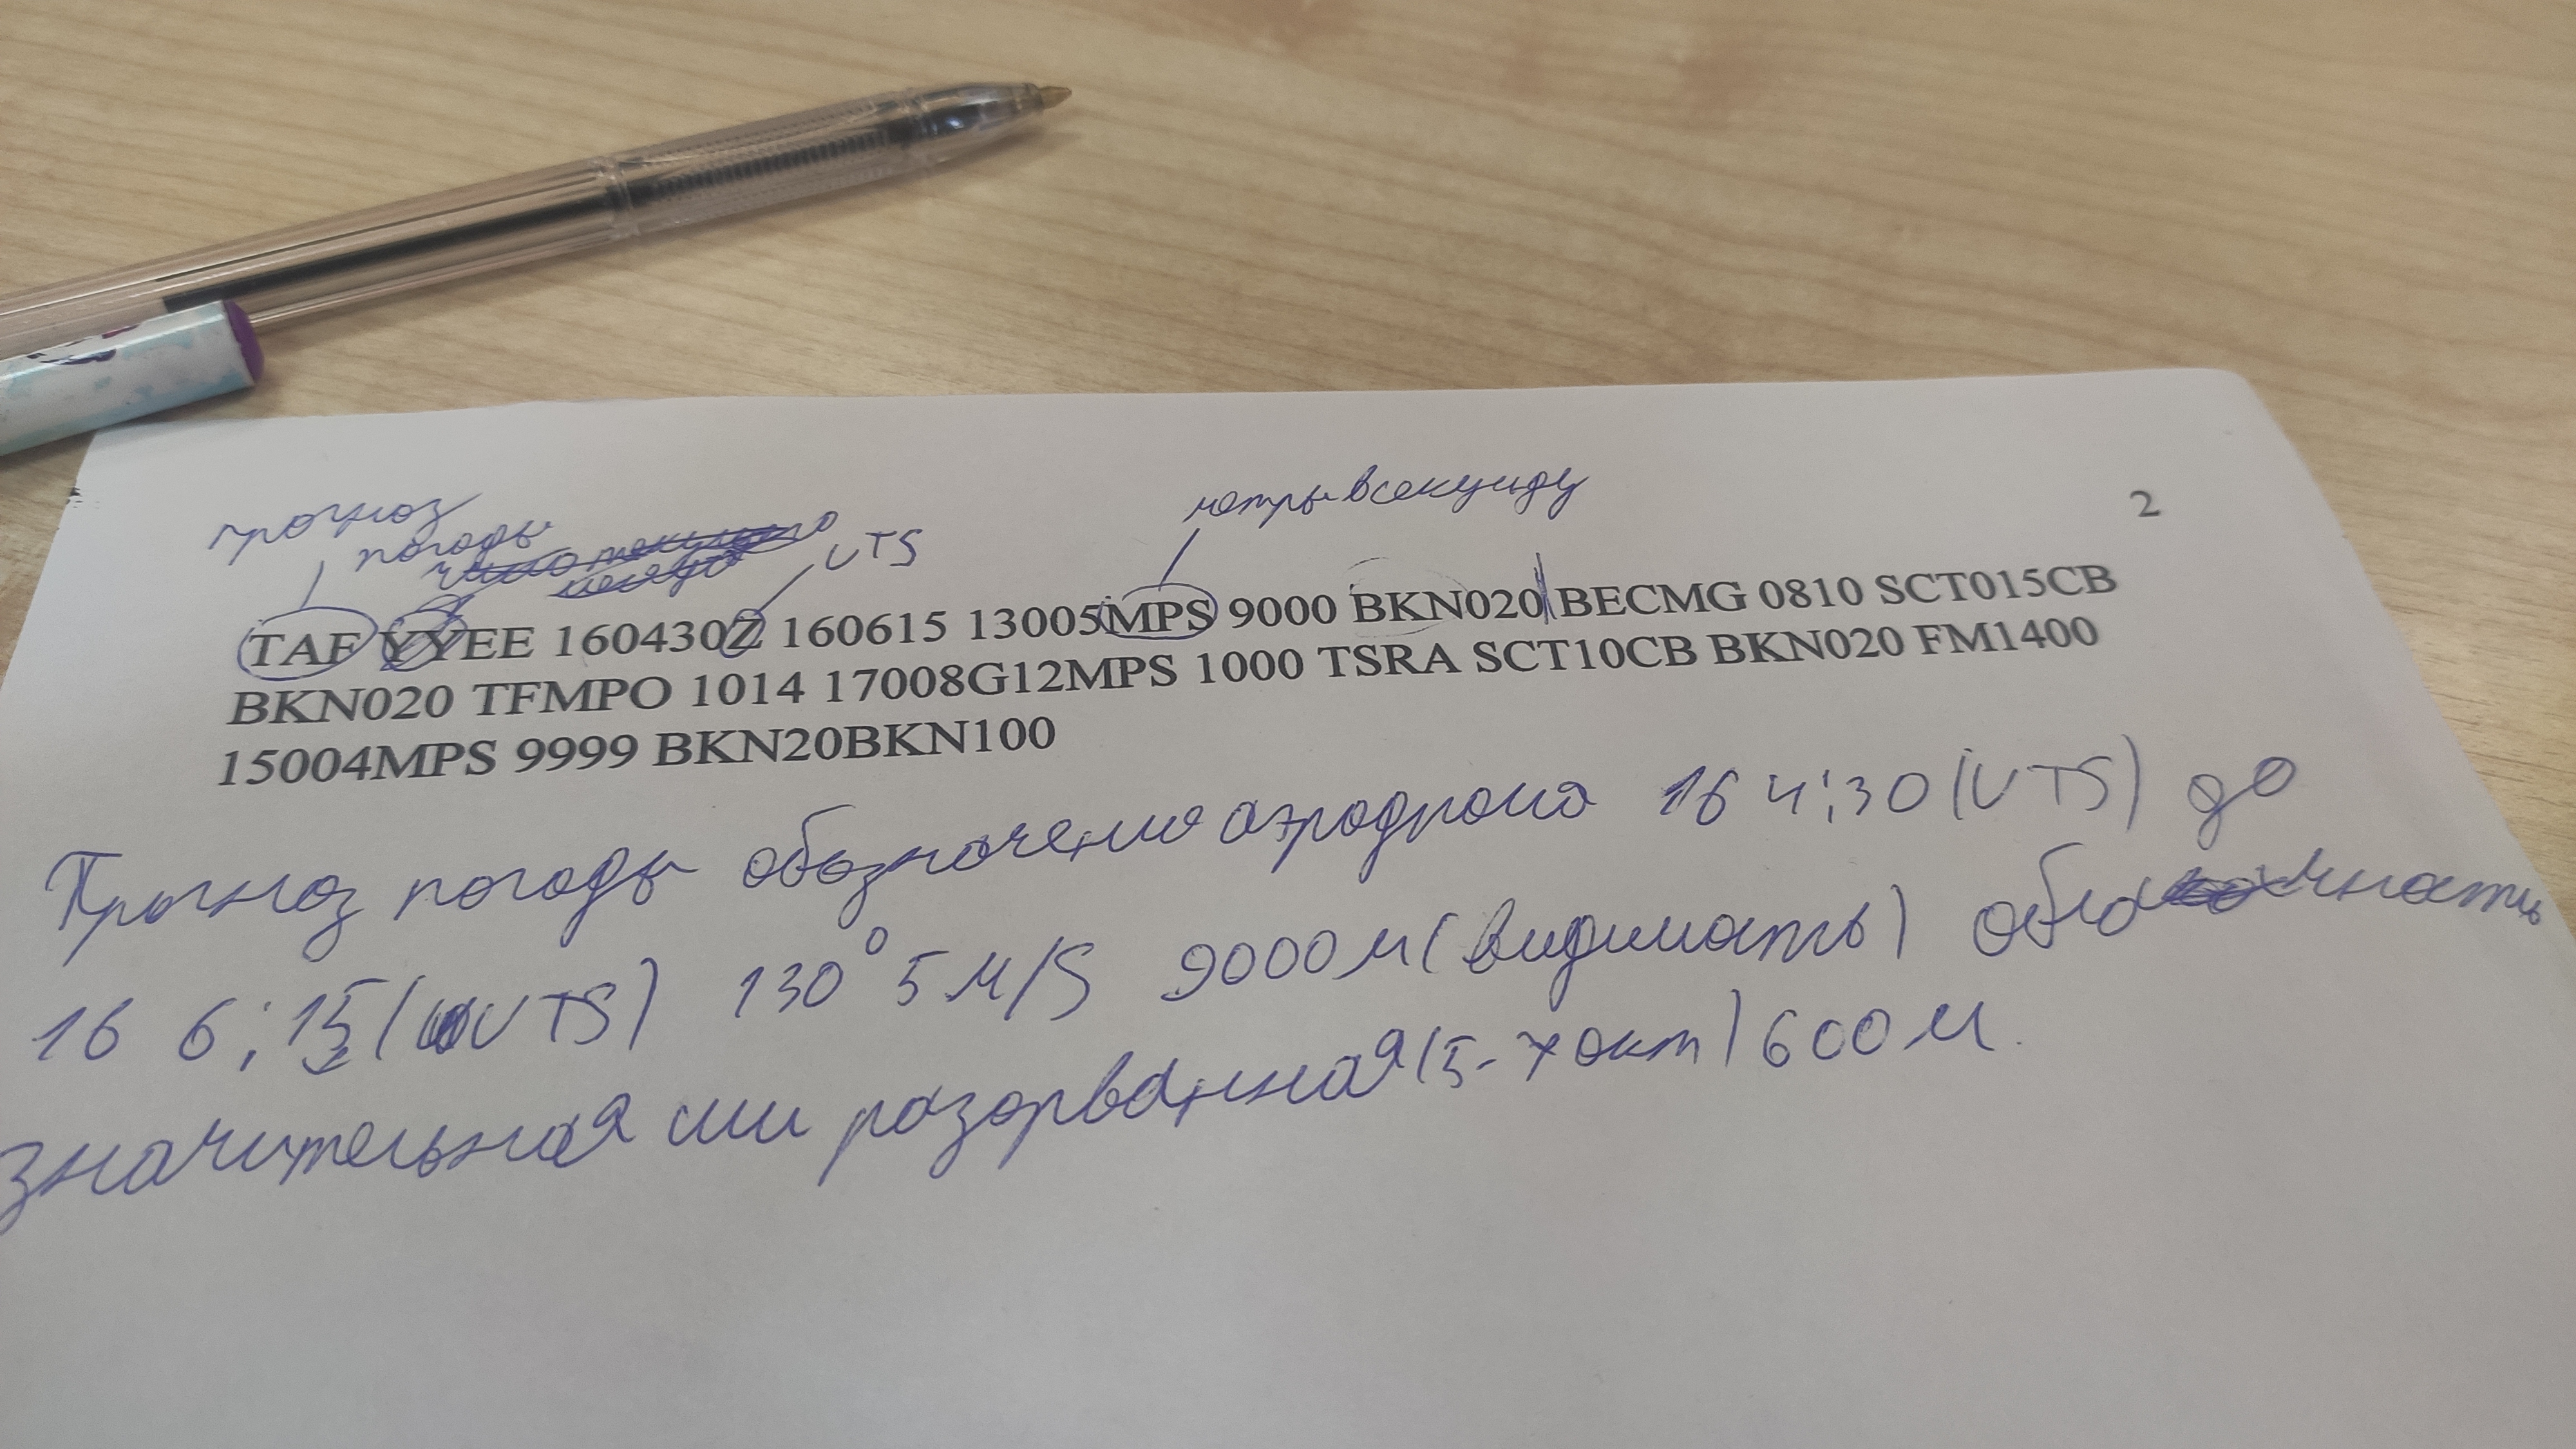 прогноз
погоды
UTS
метры в секунду
2
TAF YYEE 160430Z 160615 13005MPS 9000 BKN020 BECMG 0810 SCT015CB
BKN020 TFMPO 1014 17008G12MPS 1000 TSRA SCT10CB BKN020 FM1400
15004MPS 9999 BKN20BKN100
Прогноз погоды обозначение аэродрома 16 4:30 (UTS) до
16 6:15 (UTS) 130° 5 M/S 9000 м (видимость) облачность
значительная или разорванная (5-7 окт) 600 м.